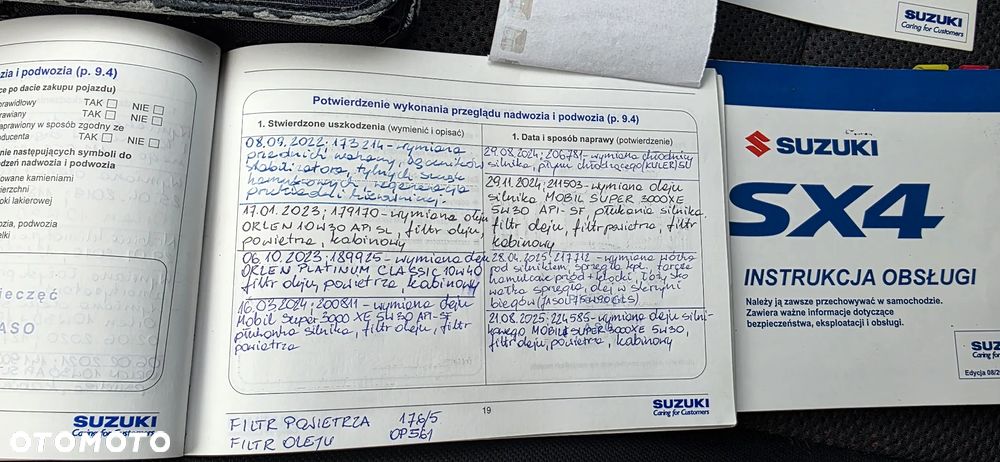 SUZUKI
Caring for Customers
zia i podwozia (p. 9.4)
ce po dacie zakupu pojazdu)
prawidłowy TAK NIE
rawiany TAK NIE
aprawiony w sposób zgodny ze
oducenta TAK NIE
nie następujących symboli do
dzeń nadwozia i podwozia
owane kamieniami
ierzchni
oki lakierowej
ozia, podwozia
elki
ieczęć
ASO
SUZUKI
Caring for Customers
OTOMOTO
Potwierdzenie wykonania przeglądu nadwozia i podwozia (p. 9.4)
1. Stwierdzone uszkodzenia (wymienić i opisać)
08.09.2022; 173214 - wymiana
przednich wahaczy, łączników
stabilizatora, tylnych
hamulcowych, regeneracja
17.01.2023; 179170 - wymiana oleju
ORLEN 10W30 API SL, filtr oleju,
powietrza, kabinowy
06.10.2023; 189925 - wymiana oleju
ORLEN PLATINUM CLASSIC 10W40
filtr oleju, powietrza, kabinowy
16.03.2024; 200811 - wymiana oleju
Mobil Super 3000 XE 5W30 API-SF,
płukanka silnika, filtr oleju, filtr
powietrza
1. Data i sposób naprawy (potwierdzenie)
29.08.2024; 206781 - wymiana chłodnicy
silnika, płynu chłodzącego (KULER) SU
29.11.2024; 211503 - wymiana oleju
silnika MOBIL SUPER 3000XE
5W30 API-SF, płukania silnika,
filtr oleju, filtr powietrza, filtr
kabinowy
28.04.2025; 217212 - wymiana wózka
pod silnikiem, sprzęgła kpl., tarcze
hamulcowe przód + klocki, łożysko
wałka sprzęgła, olej w skrzyni
biegów (JASOL 75W90 GL5)
21.08.2025; 224585 - wymiana oleju silni-
kowego MOBIL SUPER 3000XE 5W30,
filtr oleju, powietrza, kabinowy
19
SUZUKI
Caring for Customers
FILTR POWIETRZA 176/5
FILTR OLEJU OP561
SUZUKI
SX4
INSTRUKCJA OBSŁUGI
Należy ją zawsze przechowywać w samochodzie.
Zawiera ważne informacje dotyczące
bezpieczeństwa, eksploatacji i obsługi.
SUZ
Caring fo
Edycja 08/2